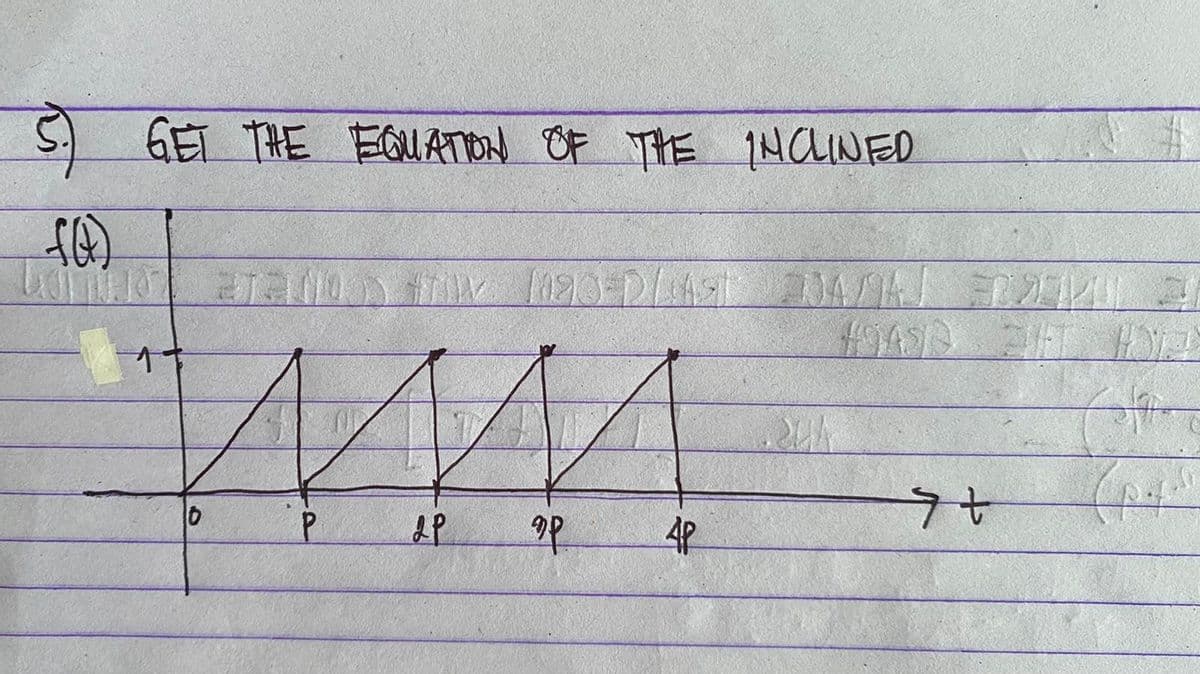 5.) GET THE EQUATION OF THE INCLINED
f(t)
1
0 P 2P 3P 4P
t